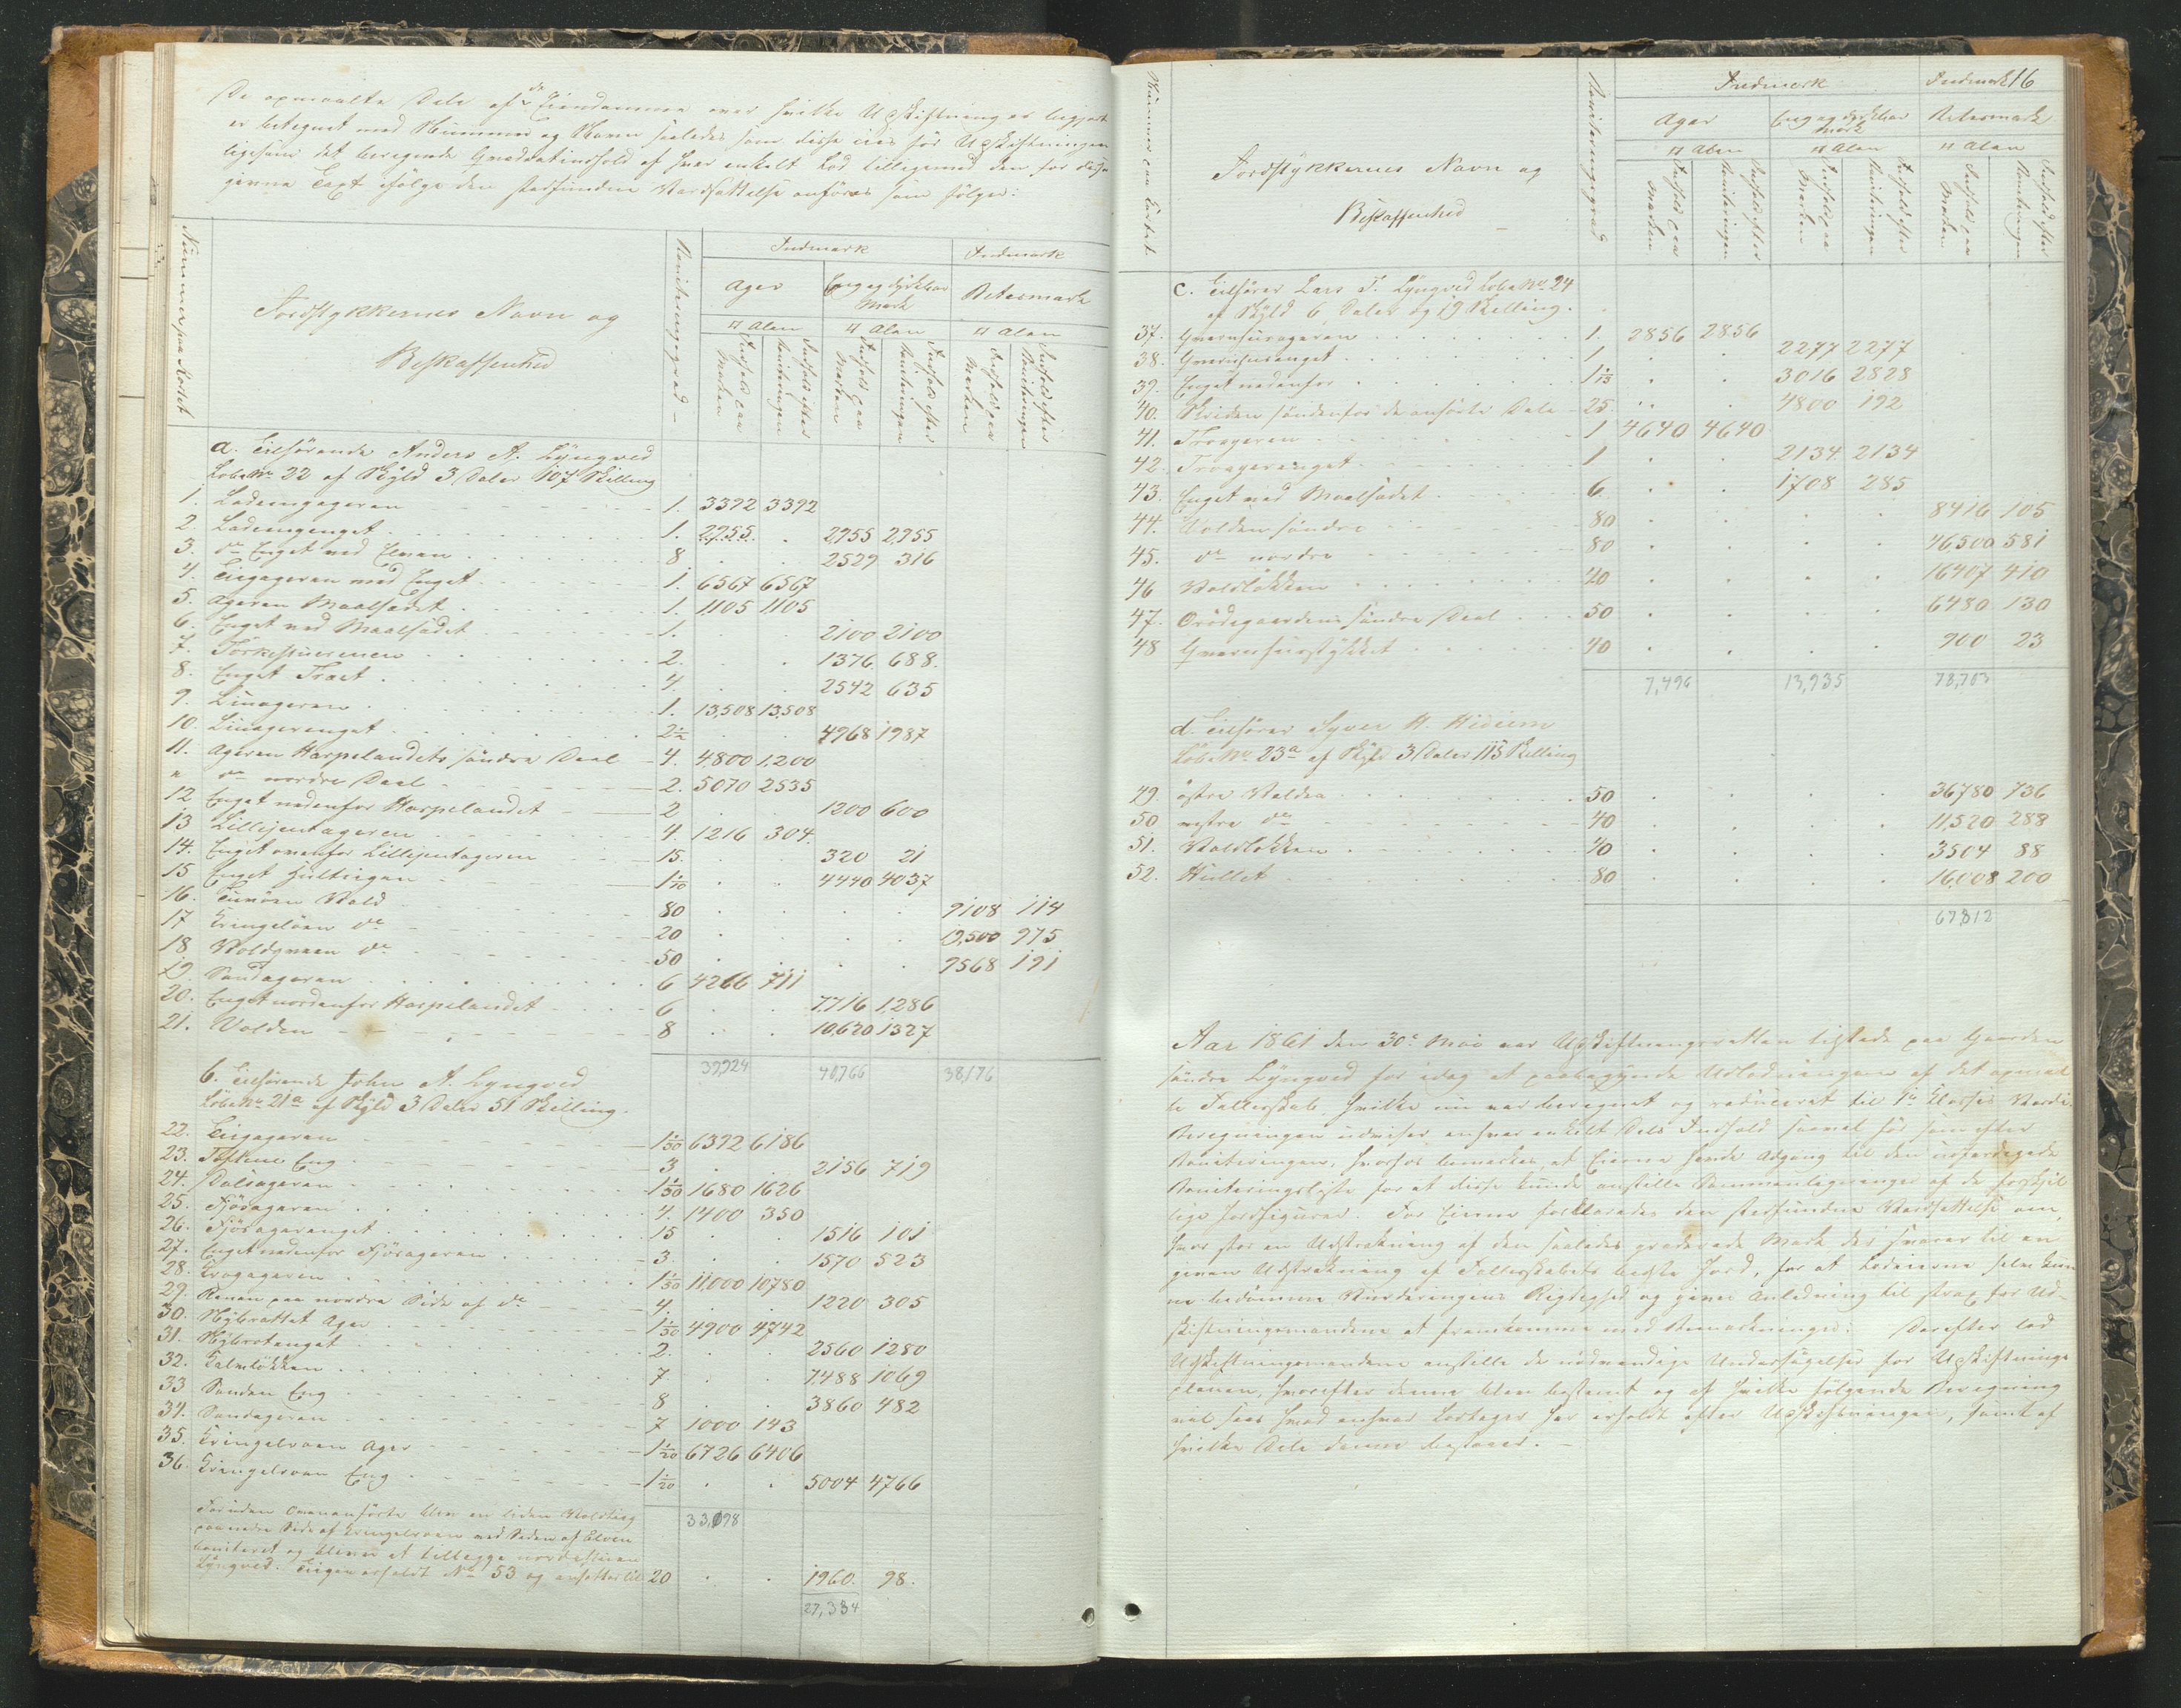 De opmaalte Dele af de Eiendomme over hvilke Udskiftning er begjært
er betegnet med Nummer og Navne saaledes som disse eies før Udskiftningen
ligesom det beregnede Qvadratindhold af hver enkelt Lod tilligemed den for disse
givne Taxt ifølge den stedfundne Værdsættelse anføres som følger:
Nummer paa Kartet
Jordstykkernes Navn og
Beskaffenhed
Boniteringsgrad
Indmark
Ager
Eng og dyrkbar
Mark
Beitesmark
□ Alen □ Alen □ Alen
Indhold paa Marken
Indhold efter Boniteringen
Indhold paa Marken
Indhold efter Boniteringen
Indhold paa Marken
Indhold efter Boniteringen
a. Tilhørende Anders A. Lyngved
Løbe No. 22 af Skyld 3 Daler 107 Skilling
1. Ladeengageren 1. 3392 3392
2. Ladeengenget 1. 2955 2955 2955
3. do Enget ved Elven 8 2529 316
4. Teigageren med Enget 1. 6567 6567
5. Ageren Maalsædet 1. 1105 1105
6. Enget ved Maalsædet 1. 2100 2100
7. 2. 1376 688.
8. Enget Træet 4. 2542 635
9. Linageren 1. 13,508 13,508
10. Linagerenget 2½ 4968 1987
11. Ageren Harpelandets søndre Deel 4. 4800 1,200
" do nordre Deel 2. 5070 2535
12 Enget nedenfor Harpelandet 2 1200 600
13 Lillejentageren 4. 1216 304.
14. Enget ovenfor Lillejentageren 15. 320 21
15 Enget 1 1/10 4440 4037
16. Vold 80 9108 114
17 Kringeloen do 20 19,500 975
18. do 50 9568 191
19. Sandageren 6 4266 711
20. Enget nordenfor Harpelandet 6 7,716 1,286
21. Volden 8 10,620 1327
39,924 40,766 38,176
b. Tilhørende John A. Lyngved
Løbe No. 21a af Skyld 3 Daler 51 Skilling.
22. Teigageren 1 1/30 6392 6186
23. Eng 3 2156 719
24. 1 1/30 1680 1626
25. Fjøsageren 4. 1400 350
26. Fjøsagerenget 15 1516 101
27. Enget nedenfor Fjøsageren 3. 1570 523
28. Krogageren 1 1/50 11,000 10780
29. Renen paa nordre Side af do 4. 1220 305
30. Nybrottet Ager 1 1/30 4900 4742
31. Nybrotenget 2. 2560 1280
32. Kalveløkken 7 7,488 1069
33 Sanden Eng 8 3860 482
34. Sandageren 7 1000 143
35. Kringeloen Ager 1 1/20 6726 6406
36. Kringeloen Eng 1 1/20 5004 4766
33,098
Foruden Ovenanførte blev en liden Voldteig
paa nedre Side af Kringeloen ved Siden af Elven
boniteret og bliver at tillægge
Lyngved. Teigen erholdt No. 53 og ansættes til 20 1960. 98.
27,334
16
Nummer paa Kartet.
Jordstykkernes Navn og
Beskaffenhed
Boniteringsgrad
Indmark
Ager
Eng og dyrkbar
Mark
Beitesmark
□ Alen □ Alen □ Alen
Indhold paa Marken
Indhold efter Boniteringen
Indhold paa Marken
Indhold efter Boniteringen
Indhold paa Marken
Indhold efter Boniteringen
c. Tilhører Lars T. Lyngved Løbe No. 24
af Skyld 6 Daler og 19 Skilling.
37. Qvernhusageren 1. 2856 2856
38. Qvernhusenget 1 2277 2277
39. Enget nedenfor 1 1/15 3016 2828
40. Skriden søndenfor de anførte Dele 25. 4800 192
41. Troageren 1 4640 4640
42. Troagerenget 1 2134 2134
43. Enget ved Maalsædet 6. 1708 285
44. Volden søndre 80 8416 105
45. do nordre 80 46,500 581
46 Voldløkken 40 16407 410
47. Ødegaardens søndre Deel 50 6480 130
48 Qvernhusstykket 40 900 23
7,496 13,935 78,703
d. Tilhører Syver H.
Løbe No. 23a af Skyld 3 Daler 113 Skilling
49. østre Volden 50 36780 736
50 vestre do 40 11,520 288
51. Voldløkken 40 3504 88
52. Hullet 80 16,008 200
67,812
Aar 1861 den 30te Mai var Udskiftningsretten tilstede paa Gaarden
søndre Lyngved for idag at paabegynde Udlodningen af det opmaal
te Fællesskab, hvilke nu var beregnet og reduceret til 1ste Klasses Værdi.
Beregningen udviser enhver enkelt Dels Indhold saavel før som efter
Boniteringen, hvorfor bemærkes at Eierne havde Adgang til den udfærdigede
Boniteringsliste for at disse kunde anstille Sammenligninger af de forskjel
lige Jordfigurer. For Eierne forklaredes den stedfundne Værdsættelse om,
hvor stor en Udstrækning af den saaledes graderede Mark der svarer til en
given Udstrækning af Fællesskabets bedste Jord, for at Lodeierne selv kun
ne bedømme Vurderingens Rigtighed og given Anledning til strax for Ud-
skiftningsmændene at fremkomme med Bemærkninger. Derefter lod
Udskiftningsmændene anstille de nødvendige Undersøgelser for Udskiftnings
planen, hvorefter denne blev bestemt og af hvilke følgende Beregning
vil sees hvad enhver Lodtager har erholdt efter Udskiftningen, samt af
hvilke Dele denne bestaaer. -